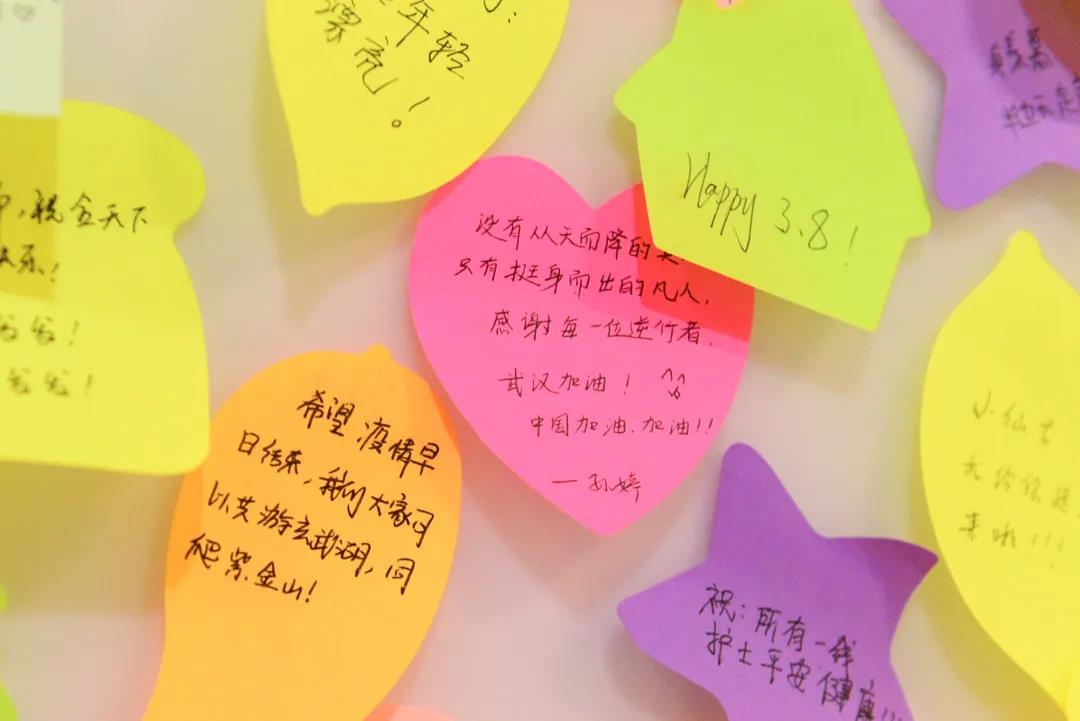 年轻
漂亮！
Happy 3.8！
祝全天下
乐！
没有从天而降的
只有挺身而出的凡人，
感谢每一位逆行者．
武汉加油！
中国加油．加油！！
一孙婷
希望疫情早
日结束，我们大家可
以共游玄武湖，同
爬紫金山！
祝：所有一线
护士平安健康！！！
小仙女
我给你送
来啦！！！